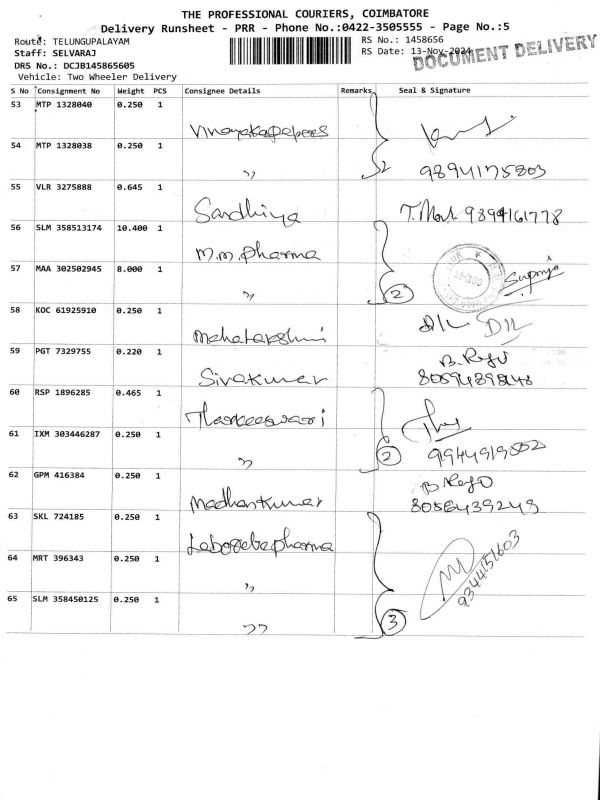 THE PROFESSIONAL COURIERS, COIMBATORE
Delivery Runsheet - PRR - Phone No.:0422-3505555 - Page No.:5
Route: TELUNGUPALAYAM
RS No.: 1458656
Staff: SELVARAJ
RS Date: 13-Nov-2024
DOCUMENT DELIVERY
DRS No.: DCJB145865605
Vehicle: Two Wheeler Delivery
S No Consignment No Weight PCS Consignee Details Remarks Seal & Signature
53 MTP 1328040 0.250 1
Vinayakapapers
54 MTP 1328038 0.250 1
" 2 9894175803
55 VLR 3275888 0.645 1
Sandhiya 9894161778
56 SLM 358513174 10.400 1
M.M. Pharma
57 MAA 302502945 8.000 1
" 2
58 KOC 61925910 0.250 1
Mahalakshmi
59 PGT 7329755 0.220 1
Sivakumar
60 RSP 1896285 0.465 1
61 IXM 303446287 0.250 1
" 2
62 GPM 416384 0.250 1
Madhankumar 8056439249
63 SKL 724185 0.250 1
64 MRT 396343 0.250 1
" 9344151603
65 SLM 358450125 0.250 1
" 3